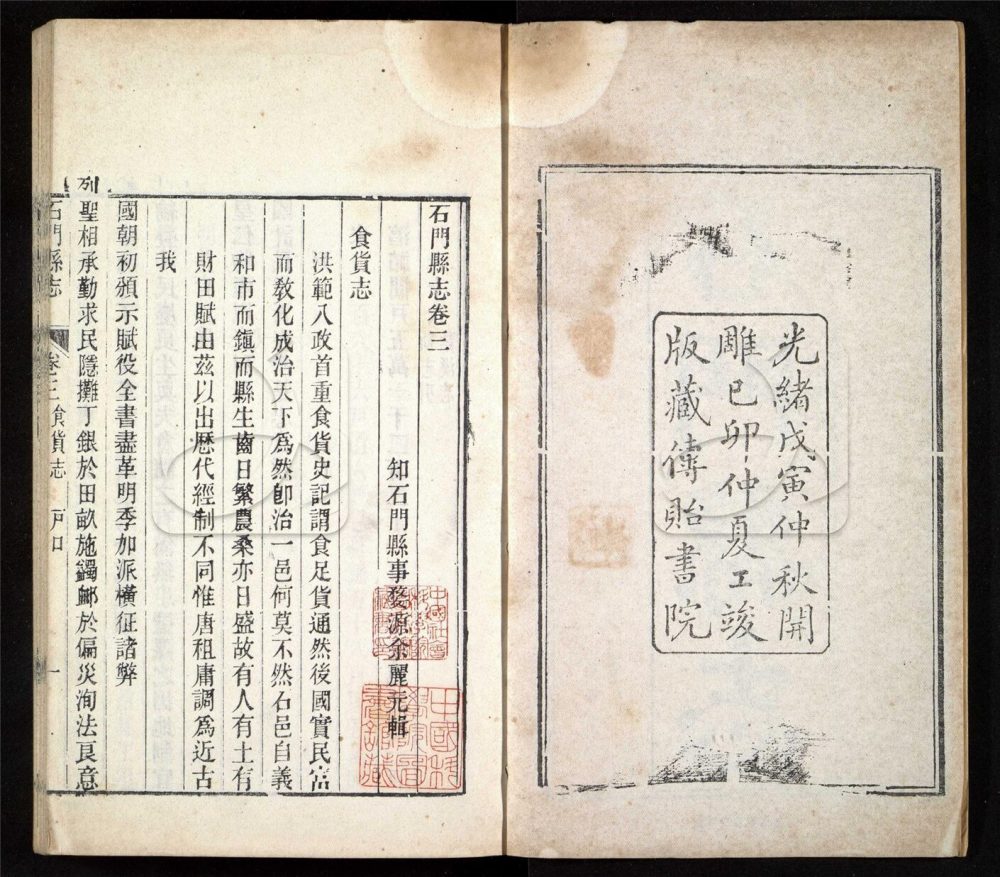 光緒戊寅仲秋開
雕己卯仲夏工竣
版藏傳貽書院
石門縣志卷三
知石門縣事婺源余麗元輯
食貨志
洪範八政首重食貨史記謂食足貨通然後國實民富
而教化成治天下爲然卽治一邑何莫不然石邑自義
和市而鎭而縣生齒日繁農桑亦日盛故有人有土有
財田賦由茲以出歷代經制不同惟唐租庸調爲近古
我
國朝初頒示賦役全書盡革明季加派橫征諸弊
列
聖相承勤求民隱攤丁銀於田畝施蠲䘏於偏災洵法良意
石門縣志
卷三食貨志 戶口
一